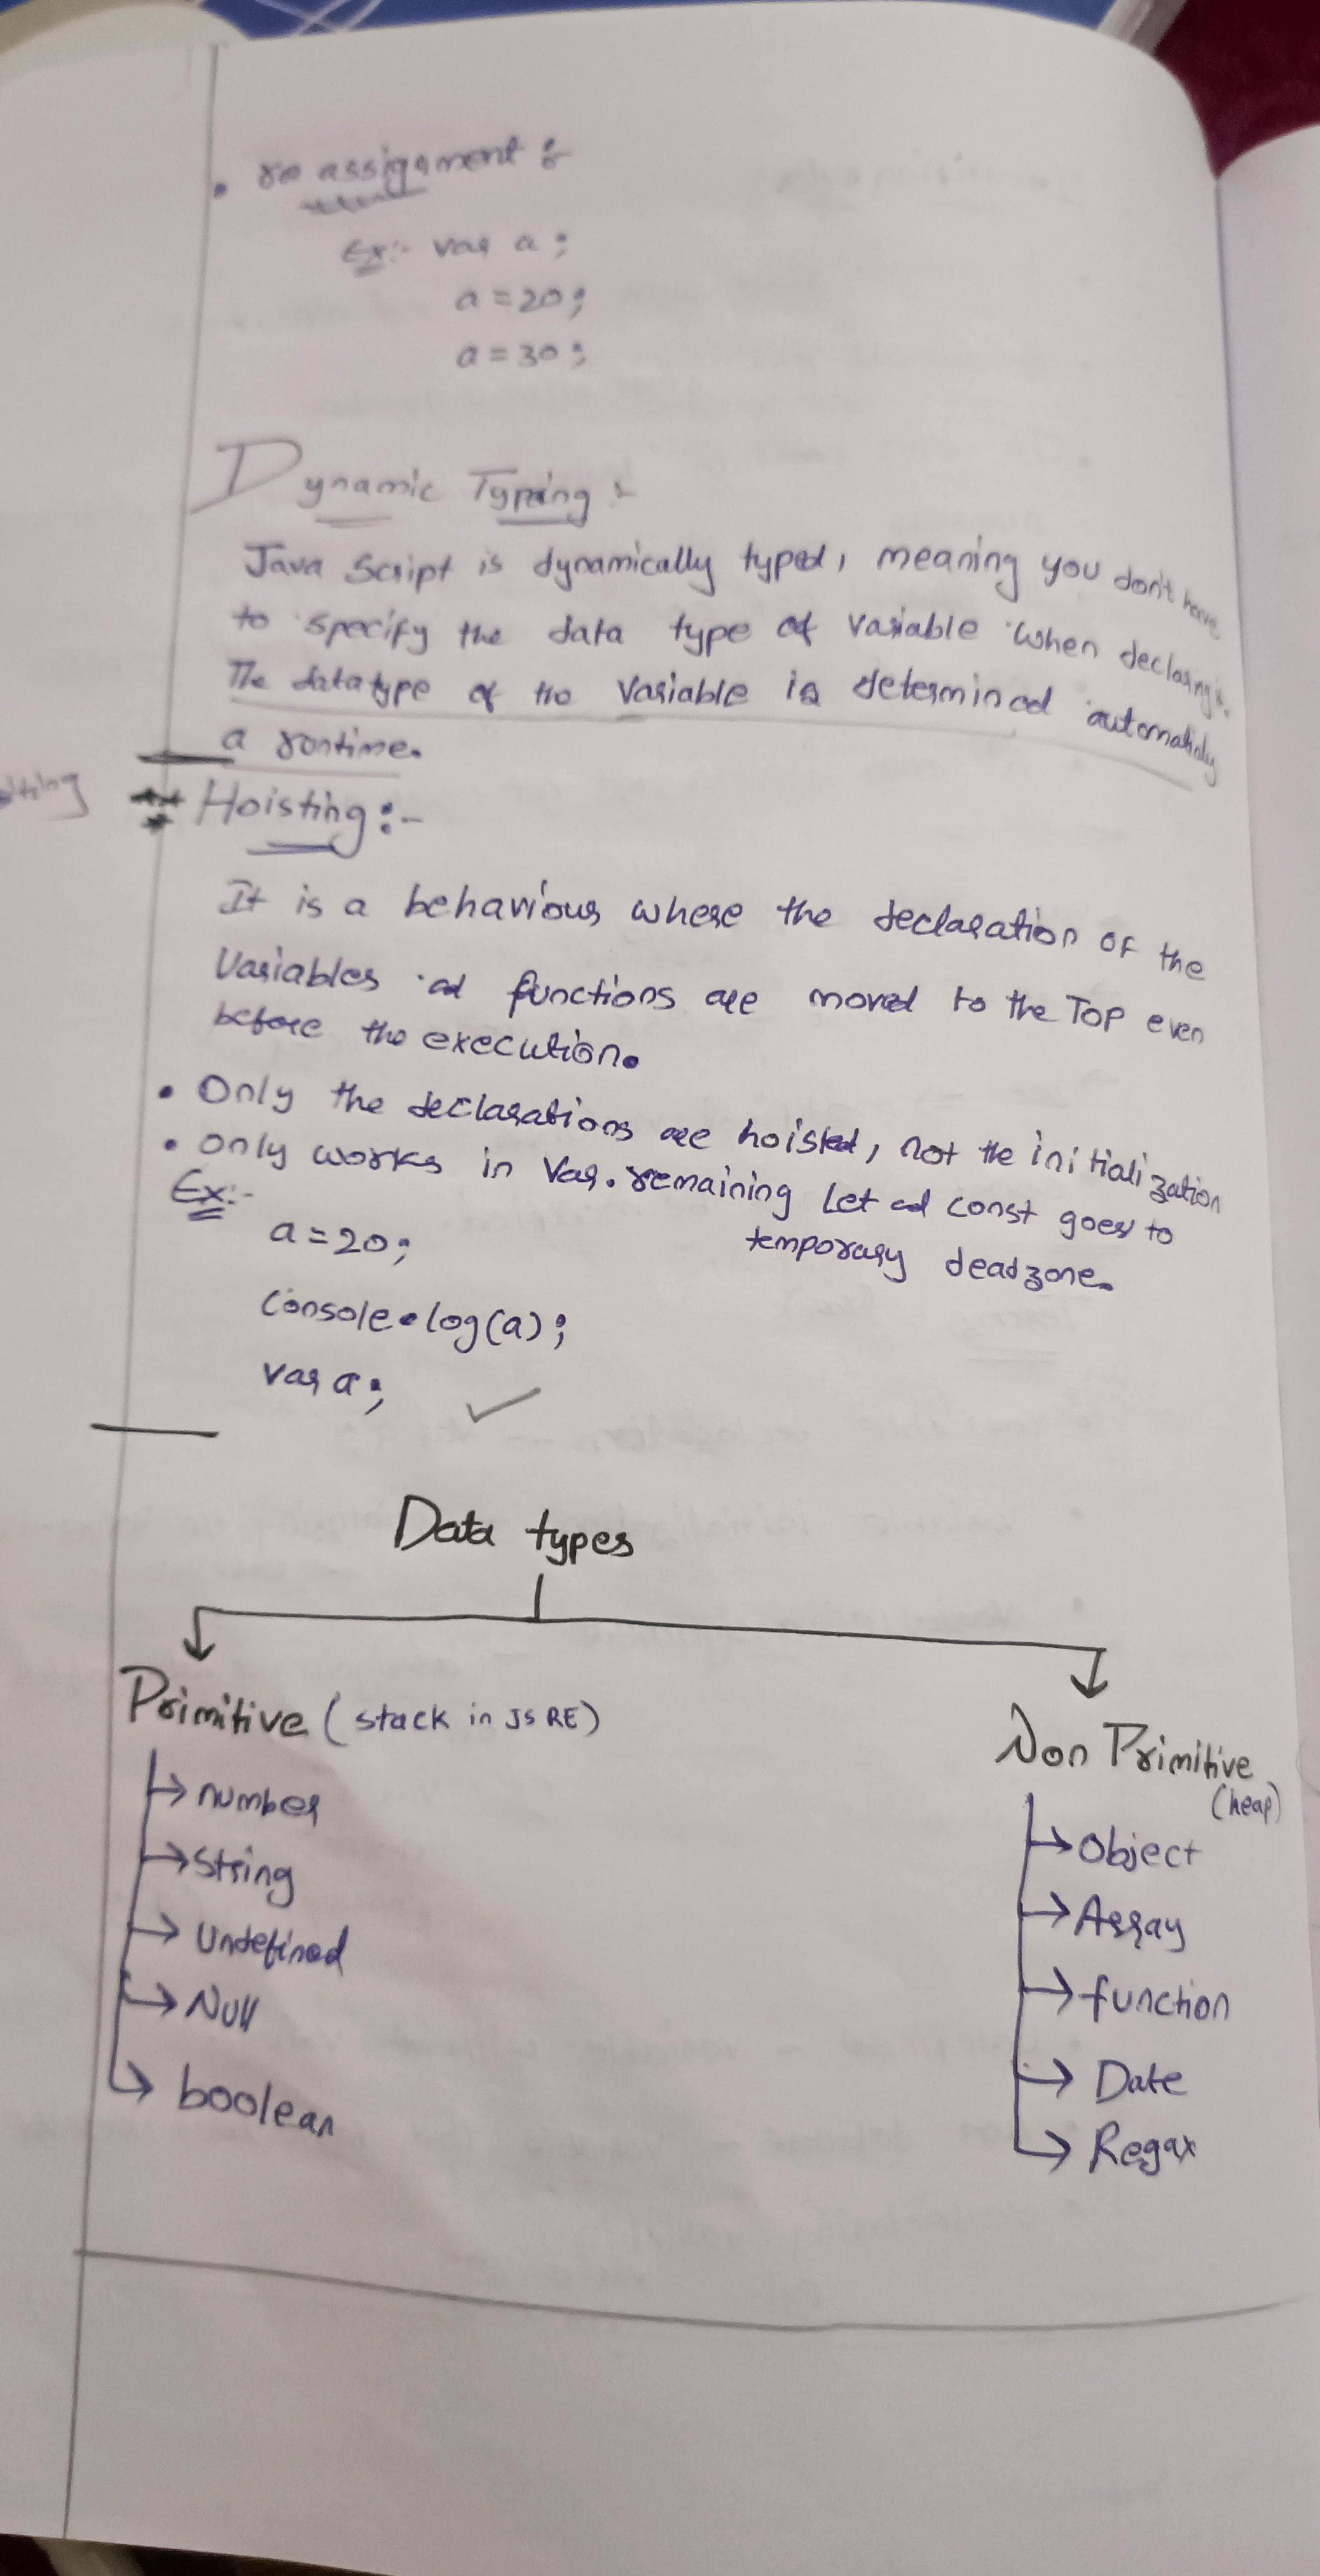 • re assignment :-
Ex:- var a ;
a = 20 ;
a = 30 ;
Dynamic Typing :-
Java Script is dynamically typed, meaning you don't have
to specify the data type of variable when declaring it.
The datatype of the variable is determined automaticly
a runtime.
Hoisting :-
It is a behaviour where the declaration of the
Variables ad functions are moved to the Top even
before the execution.
• Only the declarations are hoisted, not the initialization
• only works in Var. remaining Let ad const goes to
temporary deadzone.
Ex:-
a = 20 ;
Console.log(a) ;
var a ;
Data types
Primitive ( stack in JS RE )
Number
String
Undefined
Null
boolean
Non Primitive
(heap)
Object
Array
function
Date
Regax